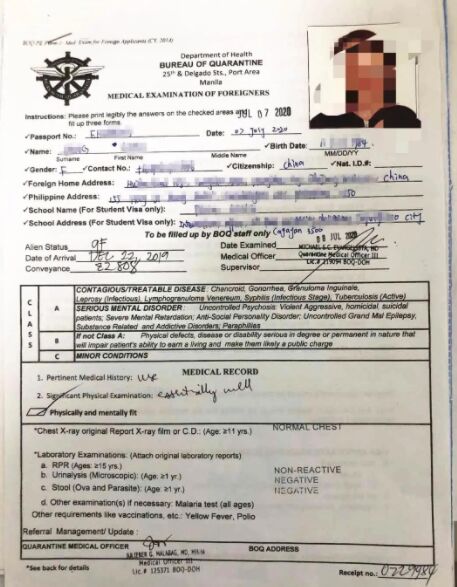 Department of Health
BUREAU OF QUARANTINE
25th & Delgado Sts., Port Area
Manila
MEDICAL EXAMINATION OF FOREIGNERS
Instructions: Please print legibly the answers on the checked areas and JUL 07 2020
fill up three forms.
✓Passport No.: E Date: 07 July 2020
✓Name: ✓Birth Date: 1984
Surname First Name Middle Name MM/DD/YY
✓Gender: F ✓Contact No.: ✓Citizenship: China ✓Nat. I.D.#:
✓Foreign Home Address: China
✓Philippine Address:
✓School Name (For Student Visa only):
✓School Address (For Student Visa only): CITY
To be filled up by BOQ staff only Cagayan 3500
Alien Status 9F Date Examined 08 JUL 2020
Date of Arrival DEC 22, 2019 Medical Officer
Quarantine Medical Officer III
Conveyance Supervisor Lic.# BOQ-DOH
CLASS
A CONTAGIOUS/TREATABLE DISEASE: Chancroid, Gonorrhea, Granuloma Inguinale,
Leprosy (Infectious), Lymphogranuloma Venereum, Syphilis (Infectious Stage), Tuberculosis (Active)
SERIOUS MENTAL DISORDER: Uncontrolled Psychosis: Violent Aggressive, homicidal, suicidal
patients; Severe Mental Retardation; Anti-Social Personality Disorder; Uncontrolled Grand Mal Epilepsy,
Substance Related and Addictive Disorders; Paraphilies
B If not Class A: Physical defects, disease or disability serious in degree or permanent in nature that
will impair patient's ability to earn a living and make them likely a public charge
C MINOR CONDITIONS
MEDICAL RECORD
1. Pertinent Medical History:
2. Significant Physical Examination: essentially well
Physically and mentally fit
*Chest X-ray original Report X-ray film or C.D.: (Age: ≥11 yrs.) NORMAL CHEST
*Laboratory Examinations: (Attach original laboratory reports)
a. RPR (Ages: ≥15 yrs.) NON-REACTIVE
b. Urinalysis (Microscopic): (Age: ≥1 yr.) NEGATIVE
c. Stool (Ova and Parasite): (Age: ≥1 yr.) NEGATIVE
d. Other examination(s) if necessary: Malaria test (all ages)
Other requirements like vaccinations, etc.: Yellow Fever, Polio
Referral Management/ Update :
QUARANTINE MEDICAL OFFICER BOQ ADDRESS
Medical Officer III
*See back for details Lic.# 125371 BOQ-DOH Receipt no.: 0729984